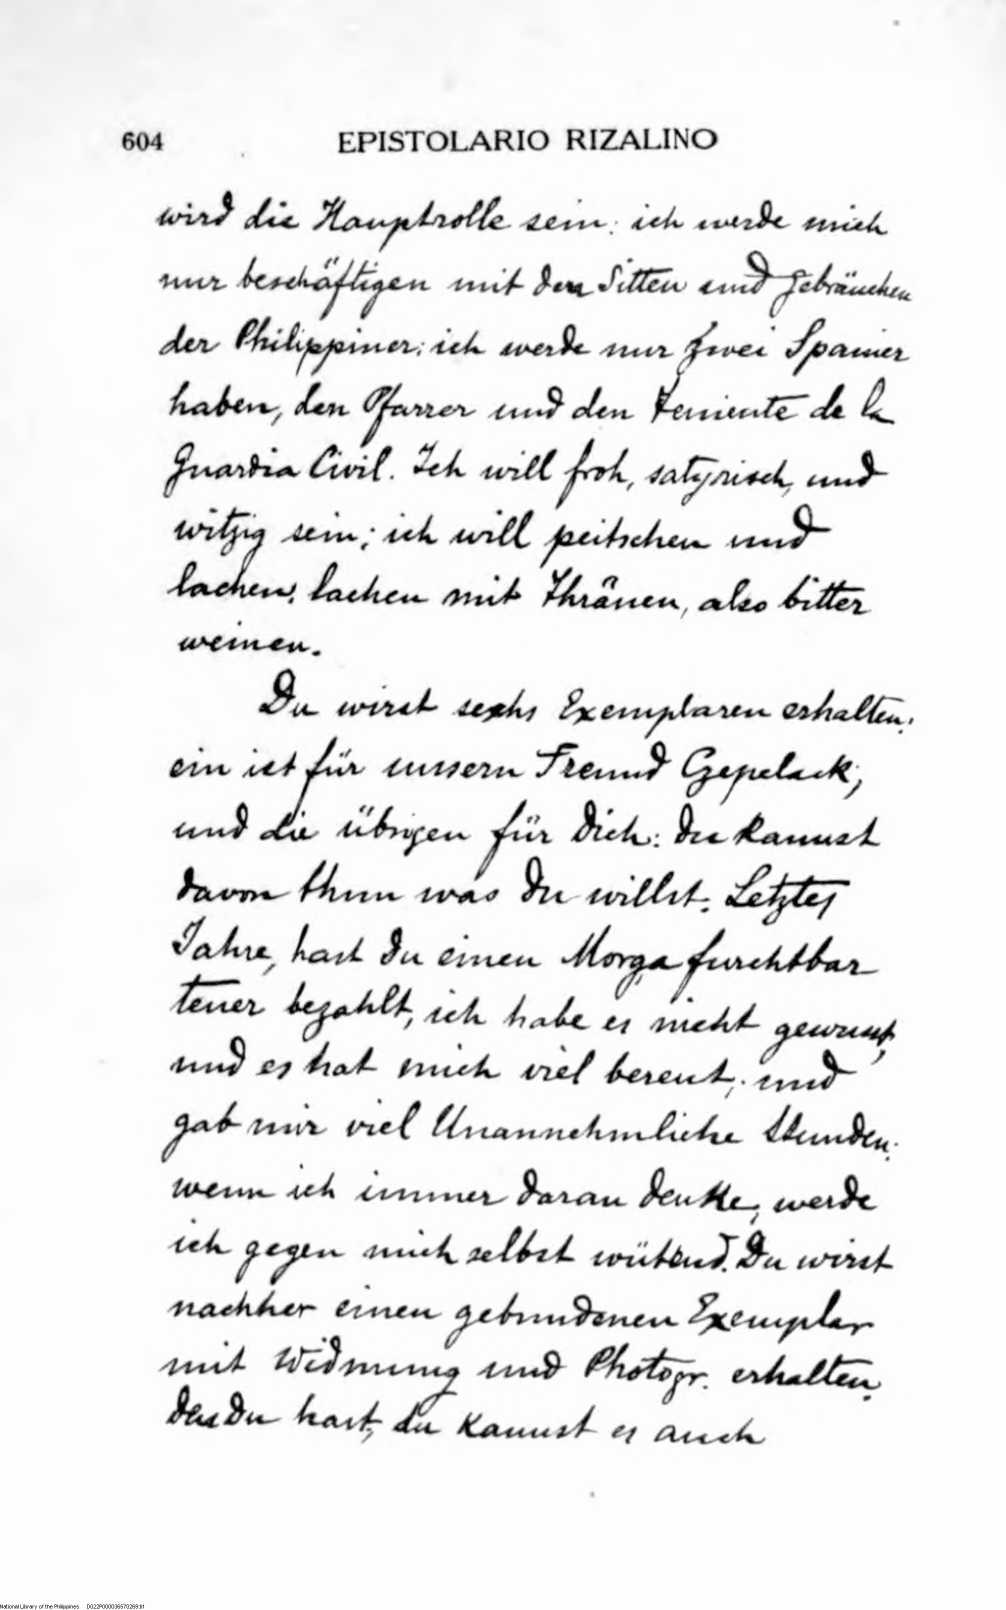 604 EPISTOLARIO RIZALINO
wird die Hauptrolle sein: ich werde mich
nur beschäftigen mit den Sitten und Gebräuchen
der Philippiner; ich werde nur zwei Spanier
haben, den Pfarrer und den Teniente de la
Guardia Civil. Ich will froh, satyrisch, und
witzig sein; ich will peitschen und
lachen, lachen mit Thränen, also bitter
weinen.
Du wirst sechs Exemplaren erhalten:
ein ist für unsern Freund Czepelack;
und die übrigen für Dich: du kannst
davon thun was du willst. Letztes
Jahre, hast du einen Morga furchtbar
teuer bezahlt, ich habe es nicht gewusst,
und es hat mich viel bereut; und
gab mir viel Unannehmliche Stunden:
wenn ich immer daran denke, werde
ich gegen mich selbst wütend. Du wirst
nachher einen gebundenen Exemplar
mit Widmung und Photogr. erhalten.
Den Du hast, du kannst es auch
National Library of the Philippines